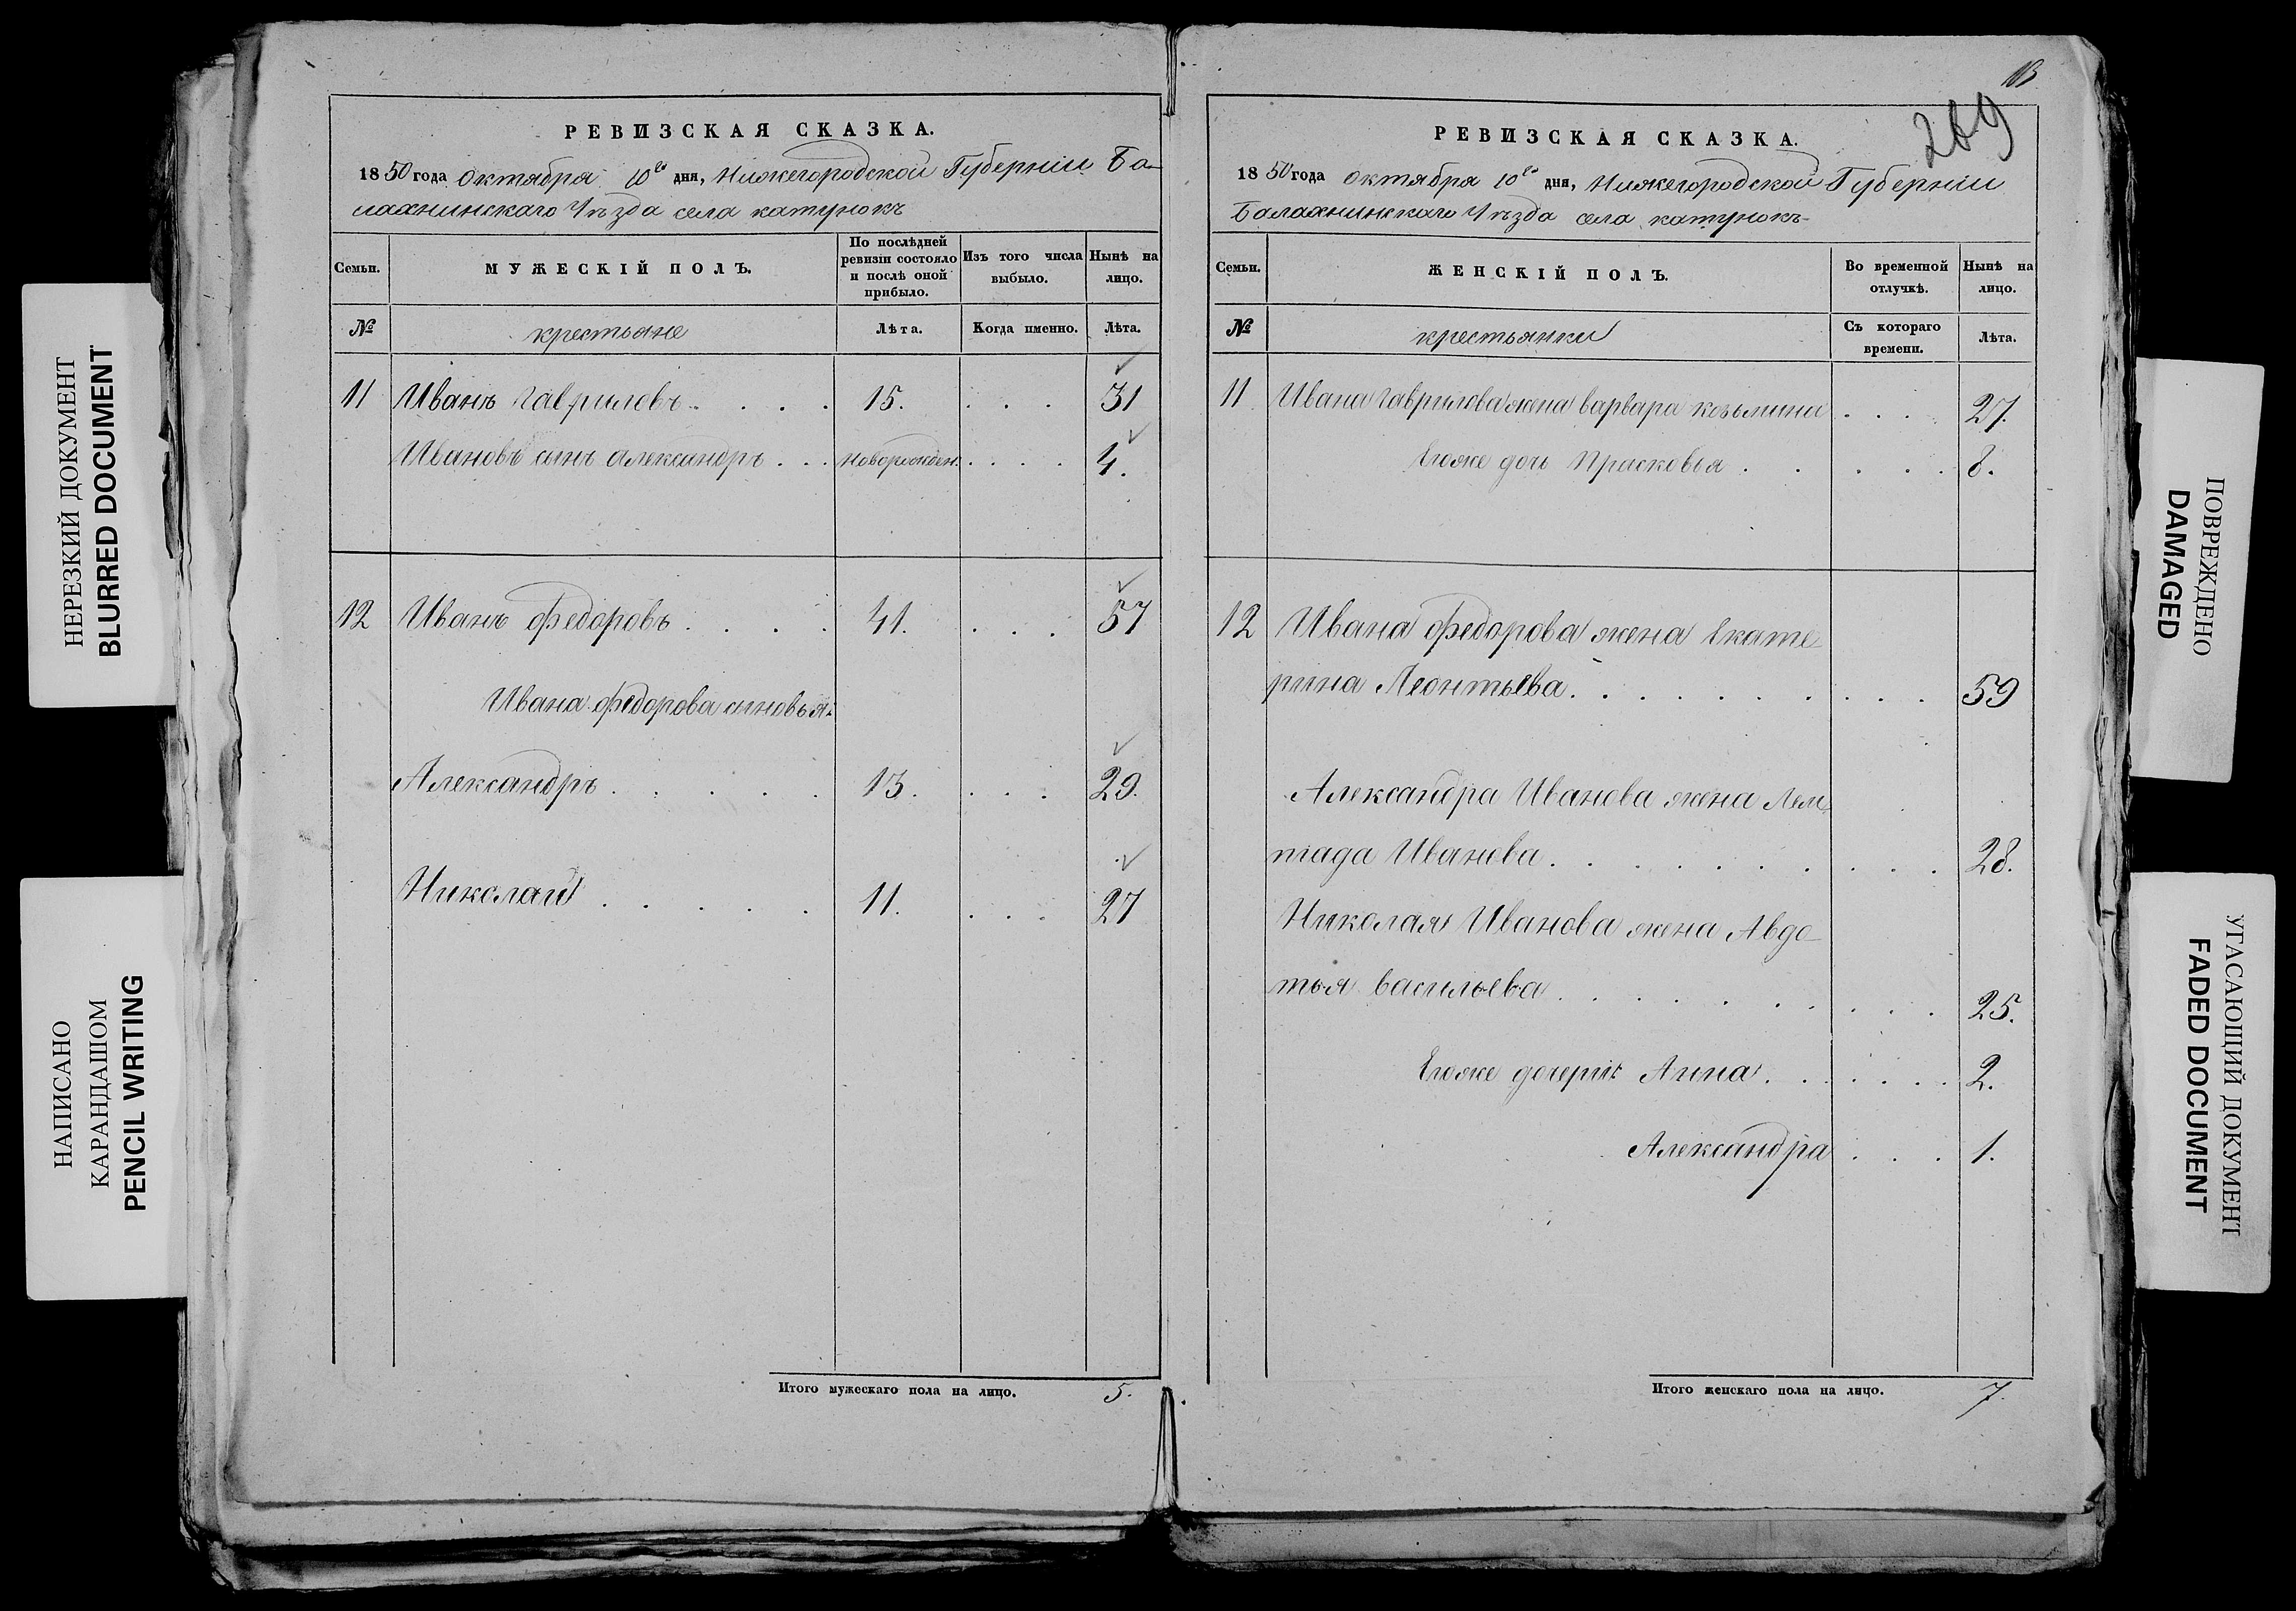 НЕРЕЗКИЙ ДОКУМЕНТ
BLURRED DOCUMENT
НАПИСАНО
КАРАНДАШОМ
PENCIL WRITING
РЕВИЗСКАЯ СКАЗКА.
1850 года октября 10го дня, Нижегородской Губерніи Ба-
лахнинскаго Уѣзда села катунокъ
Семьи. МУЖЕСКІЙ ПОЛЪ. По послѣдней ревизіи состояло и послѣ оной прибыло. Изъ того числа выбыло. Нынѣ на лицо.
№ крестьяне Лѣта. Когда именно. Лѣта.
11 Иванъ Гавриловъ . . . . 15. . . . 31
Ивановъ сынъ Александръ . . . новорожден. . . . . 4.
12 Иванъ Федоровъ . . . . 41. . . . 57
Ивана Федорова сыновья:
Александръ . . . . . 13. . . . 29.
Николай . . . . . 11. . . . 27
Итого мужескаго пола на лицо. 5.
13
269
РЕВИЗСКАЯ СКАЗКА.
1850 года октября 10го дня, Нижегородской Губерніи
Балахнинскаго Уѣзда села катунокъ
Семьи. ЖЕНСКІЙ ПОЛЪ. Во временной отлучкѣ. Нынѣ на лицо.
№ крестьянки Съ котораго времени. Лѣта.
11 Ивана Гаврилова жена варвара козьмина . . . 27.
Егоже дочь Прасковья . . . . . 8.
12 Ивана Федорова жена Екате-
рина Леонтьева . . . . . . . . . 59
Александра Иванова жена
Иванова . . . . . . . . . 28.
Николая Иванова жена Авдо-
тья васильева . . . . . . . . . 25.
Егоже дочери: Анна . . . . . . 2.
Александра . . . 1.
Итого женскаго пола на лицо. 7.
ПОВРЕЖДЕНО
DAMAGED
УГАСАЮЩИЙ ДОКУМЕНТ
FADED DOCUMENT